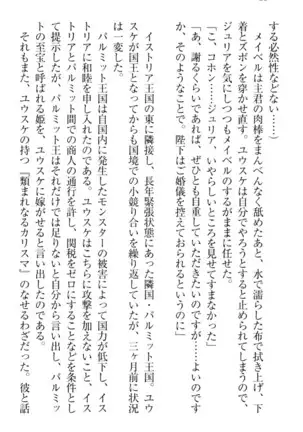 する必然性などない……）
　メイベルは主君の肉棒をまんべんなく舐めたあと、水で濡らした布で拭き上げ、下
着とズボンを穿かせ直す。ユウスケは自分でやろうとすると止められてしまうので、
ジュリアを気にしつつもメイベルのするがままに任せた。
「こ、コホン……ジュリア、いやらしいところを見せてすまなかった」
「あ、謝るくらいならば、ぜひとも自重していただきたいのですが……よいのです
か、そのようなことで。陛下はご婚儀を控えておられるというのに」
　イストリア王国の東に隣接し、長年緊張状態にあった隣国・パルミット王国。ユウ
スケが国王となってからも国境での小競り合いを繰り返していたが、三ヶ月前に状況
は一変した。
　パルミット王国は自国内に発生したモンスターの被害によって国力が低下し、イス
トリアに和睦を申し入れたのである。ユウスケはこちらに攻撃を加えないこと、イス
トリアとパルミット間での商人の通行を許し、関税をゼロにすることなどを条件とし
て提示したが、パルミット王はそれだけでは足りないと自分から言い出し、パルミッ
トの至宝と呼ばれる姫を、ユウスケに嫁がせると言い出したのである。
　それもまた、ユウスケの持つ『類まれなるカリスマ』のなせるわざだった。彼と話